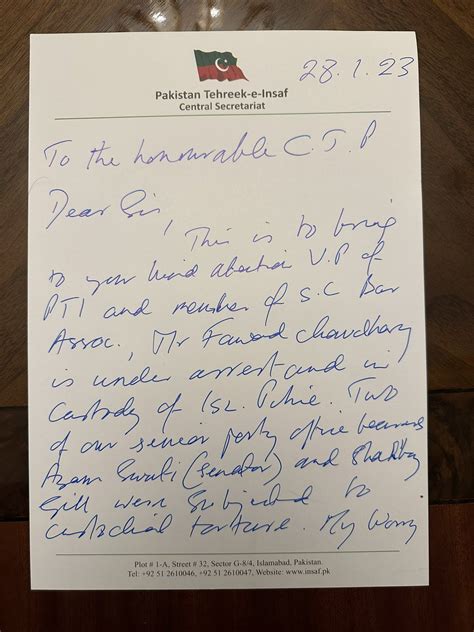 Pakistan Tehreek-e-Insaf
Central Secretariat
28.1.23
To the honourable C.J.P
Dear Sir,
This is to bring
to your kind attention V.P of
PTI and member of S.C Bar
Assoc., Mr Fawad Chaudhary
is under arrest and in
custody of Isl. Police. Two
of our senior party office bearers
Azam Swati (senator) and Shahbaz
Gill were subjected to
custodial torture. My worry
Plot # 1-A, Street # 32, Sector G-8/4, Islamabad, Pakistan.
Tel: +92 51 2610046, +92 51 2610047, Website: www.insaf.pk